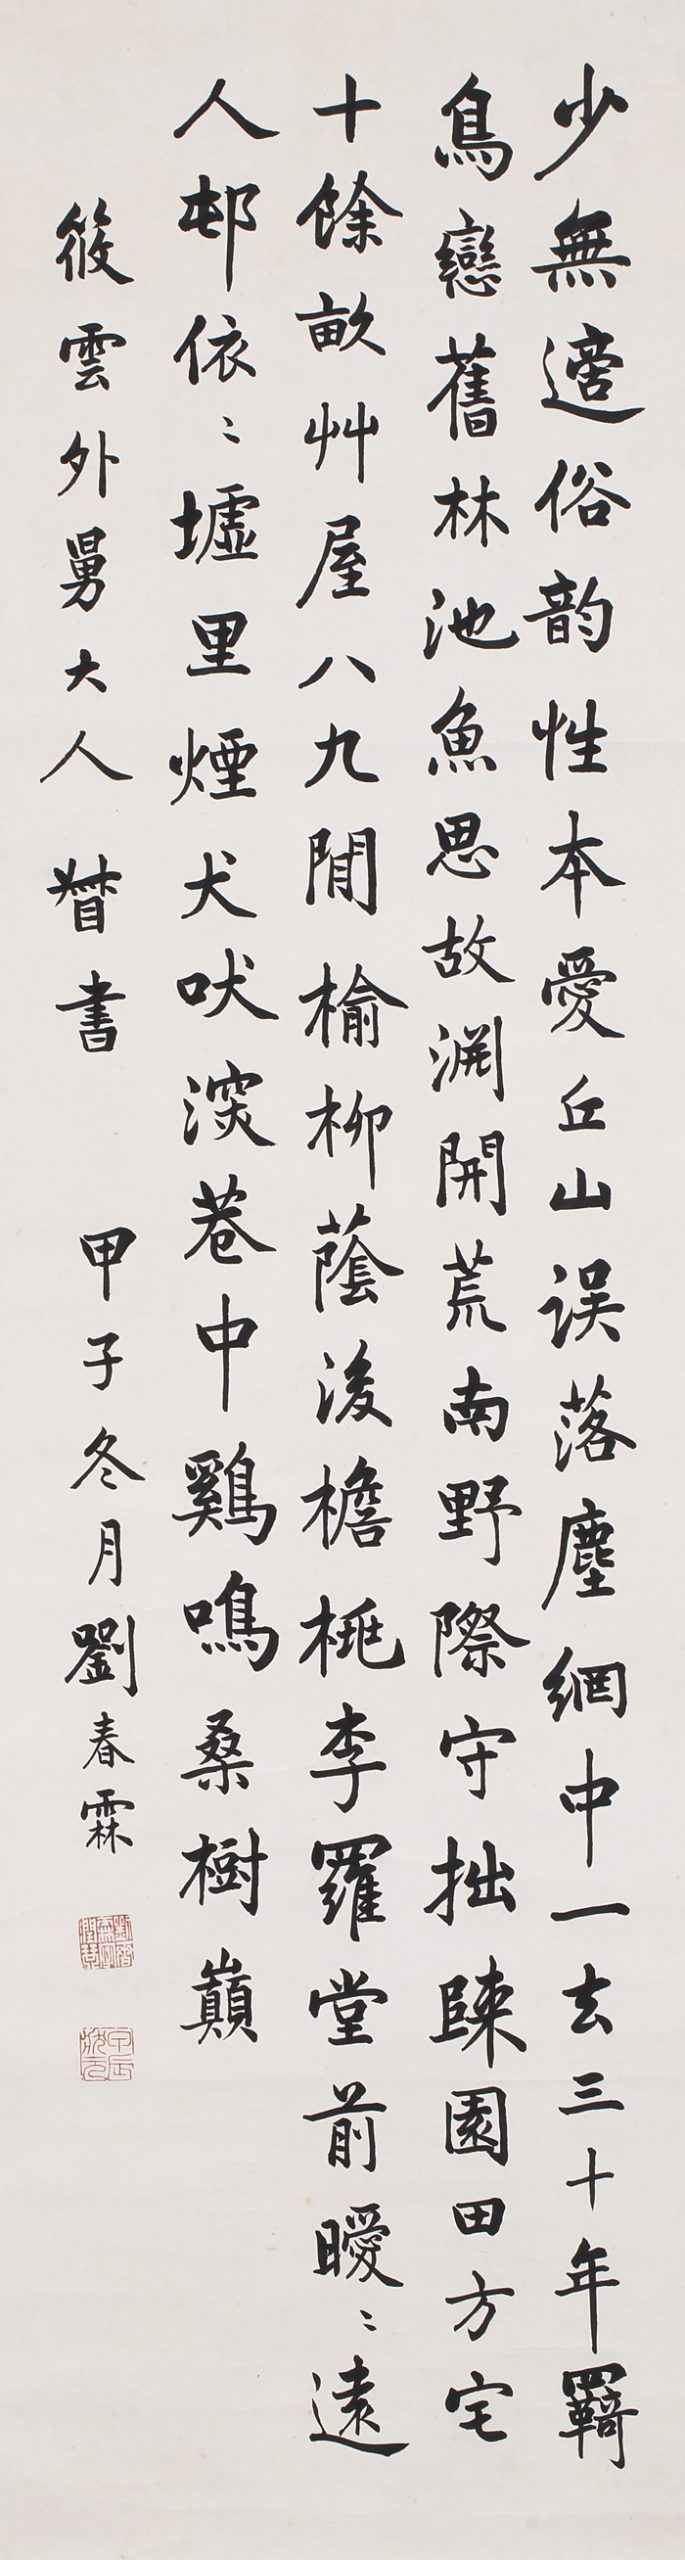 少無適俗韵性本愛丘山誤落塵網中一去三十年羈
鳥戀舊林池魚思故淵開荒南野際守拙歸園田方宅
十餘畝艸屋八九閒榆柳蔭後檐桃李羅堂前曖〻遠
人邨依〻墟里煙犬吠深巷中鷄鳴桑樹巔
筱雲外舅大人 詧書 甲子冬月劉春霖
甲辰狀元